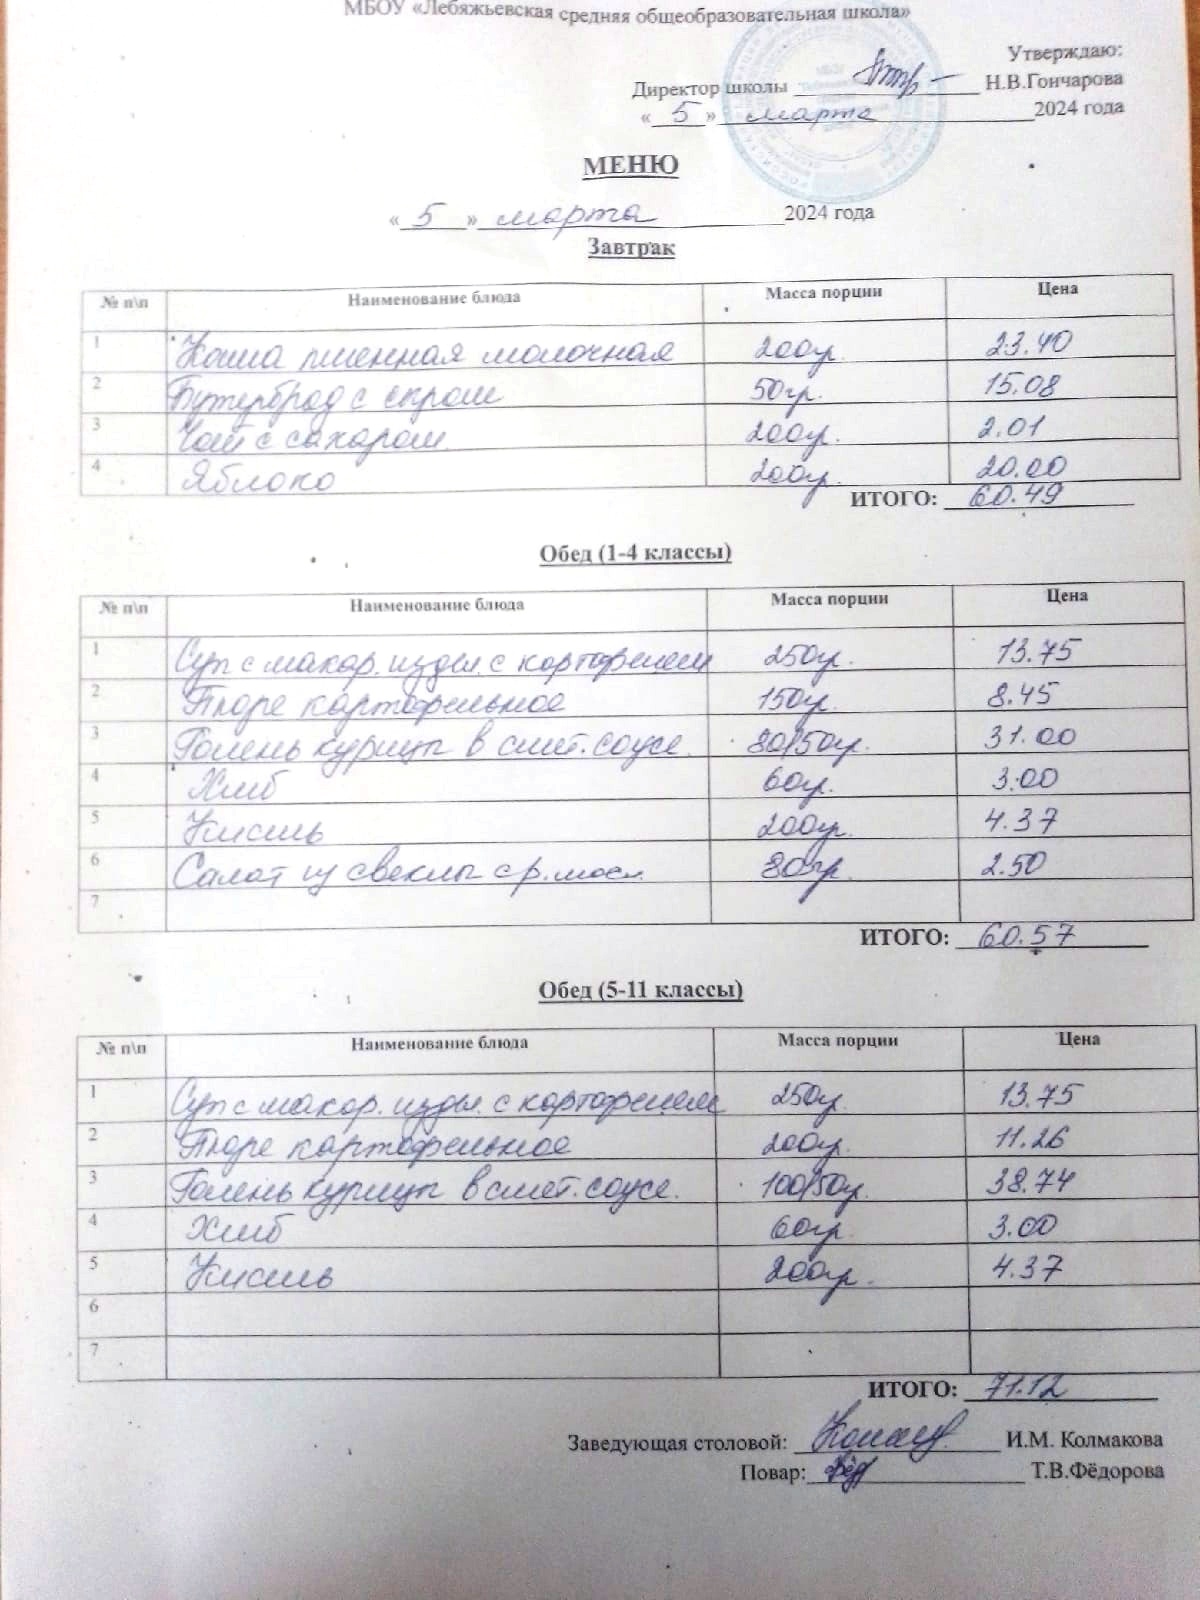 МБОУ «Лебяжьевская средняя общеобразовательная школа»
Утверждаю:
Директор школы Н.В.Гончарова
« 5 » марта 2024 года
МЕНЮ
« 5 » марта 2024 года
Завтрак
№ п\п Наименование блюда Масса порции Цена
1 Каша пшенная молочная 200гр. 23.40
2 Бутерброд с сыром 50гр. 15.08
3 Чай с сахаром 200гр. 2.01
4 Яблоко 200гр. 20.00
ИТОГО: 60.49
Обед (1-4 классы)
№ п\п Наименование блюда Масса порции Цена
1 Суп с макар. издел. с картофелем 250гр. 13.75
2 Пюре картофельное 150гр. 8.45
3 Голень курицы в смет. соусе. 80/50гр. 31.00
4 Хлеб 60гр. 3.00
5 Кисель 200гр. 4.37
6 Салат из свеклы с р.масл. 80гр. 2.50
7
ИТОГО: 60.57
Обед (5-11 классы)
№ п\п Наименование блюда Масса порции Цена
1 Суп с макар. издел. с картофелем 250гр. 13.75
2 Пюре картофельное 200гр. 11.26
3 Голень курицы в смет. соусе. 100/50гр. 38.74
4 Хлеб 60гр. 3.00
5 Кисель 200гр. 4.37
6
7
ИТОГО: 71.12
Заведующая столовой: И.М. Колмакова
Повар: Т.В.Фёдорова